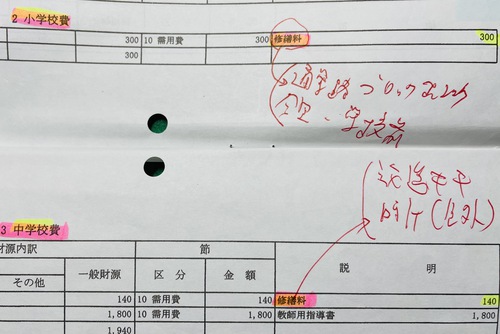 2 小学校費
300 10 需用費 300 修繕料 300
300
通学路ブロック
3 中学校費
財源内訳 節 説 明
その他 一般財源 区 分 金 額
140 10 需用費 140 修繕料 140
1,800 10 需用費 1,800 教師用指導書 1,800
1,940